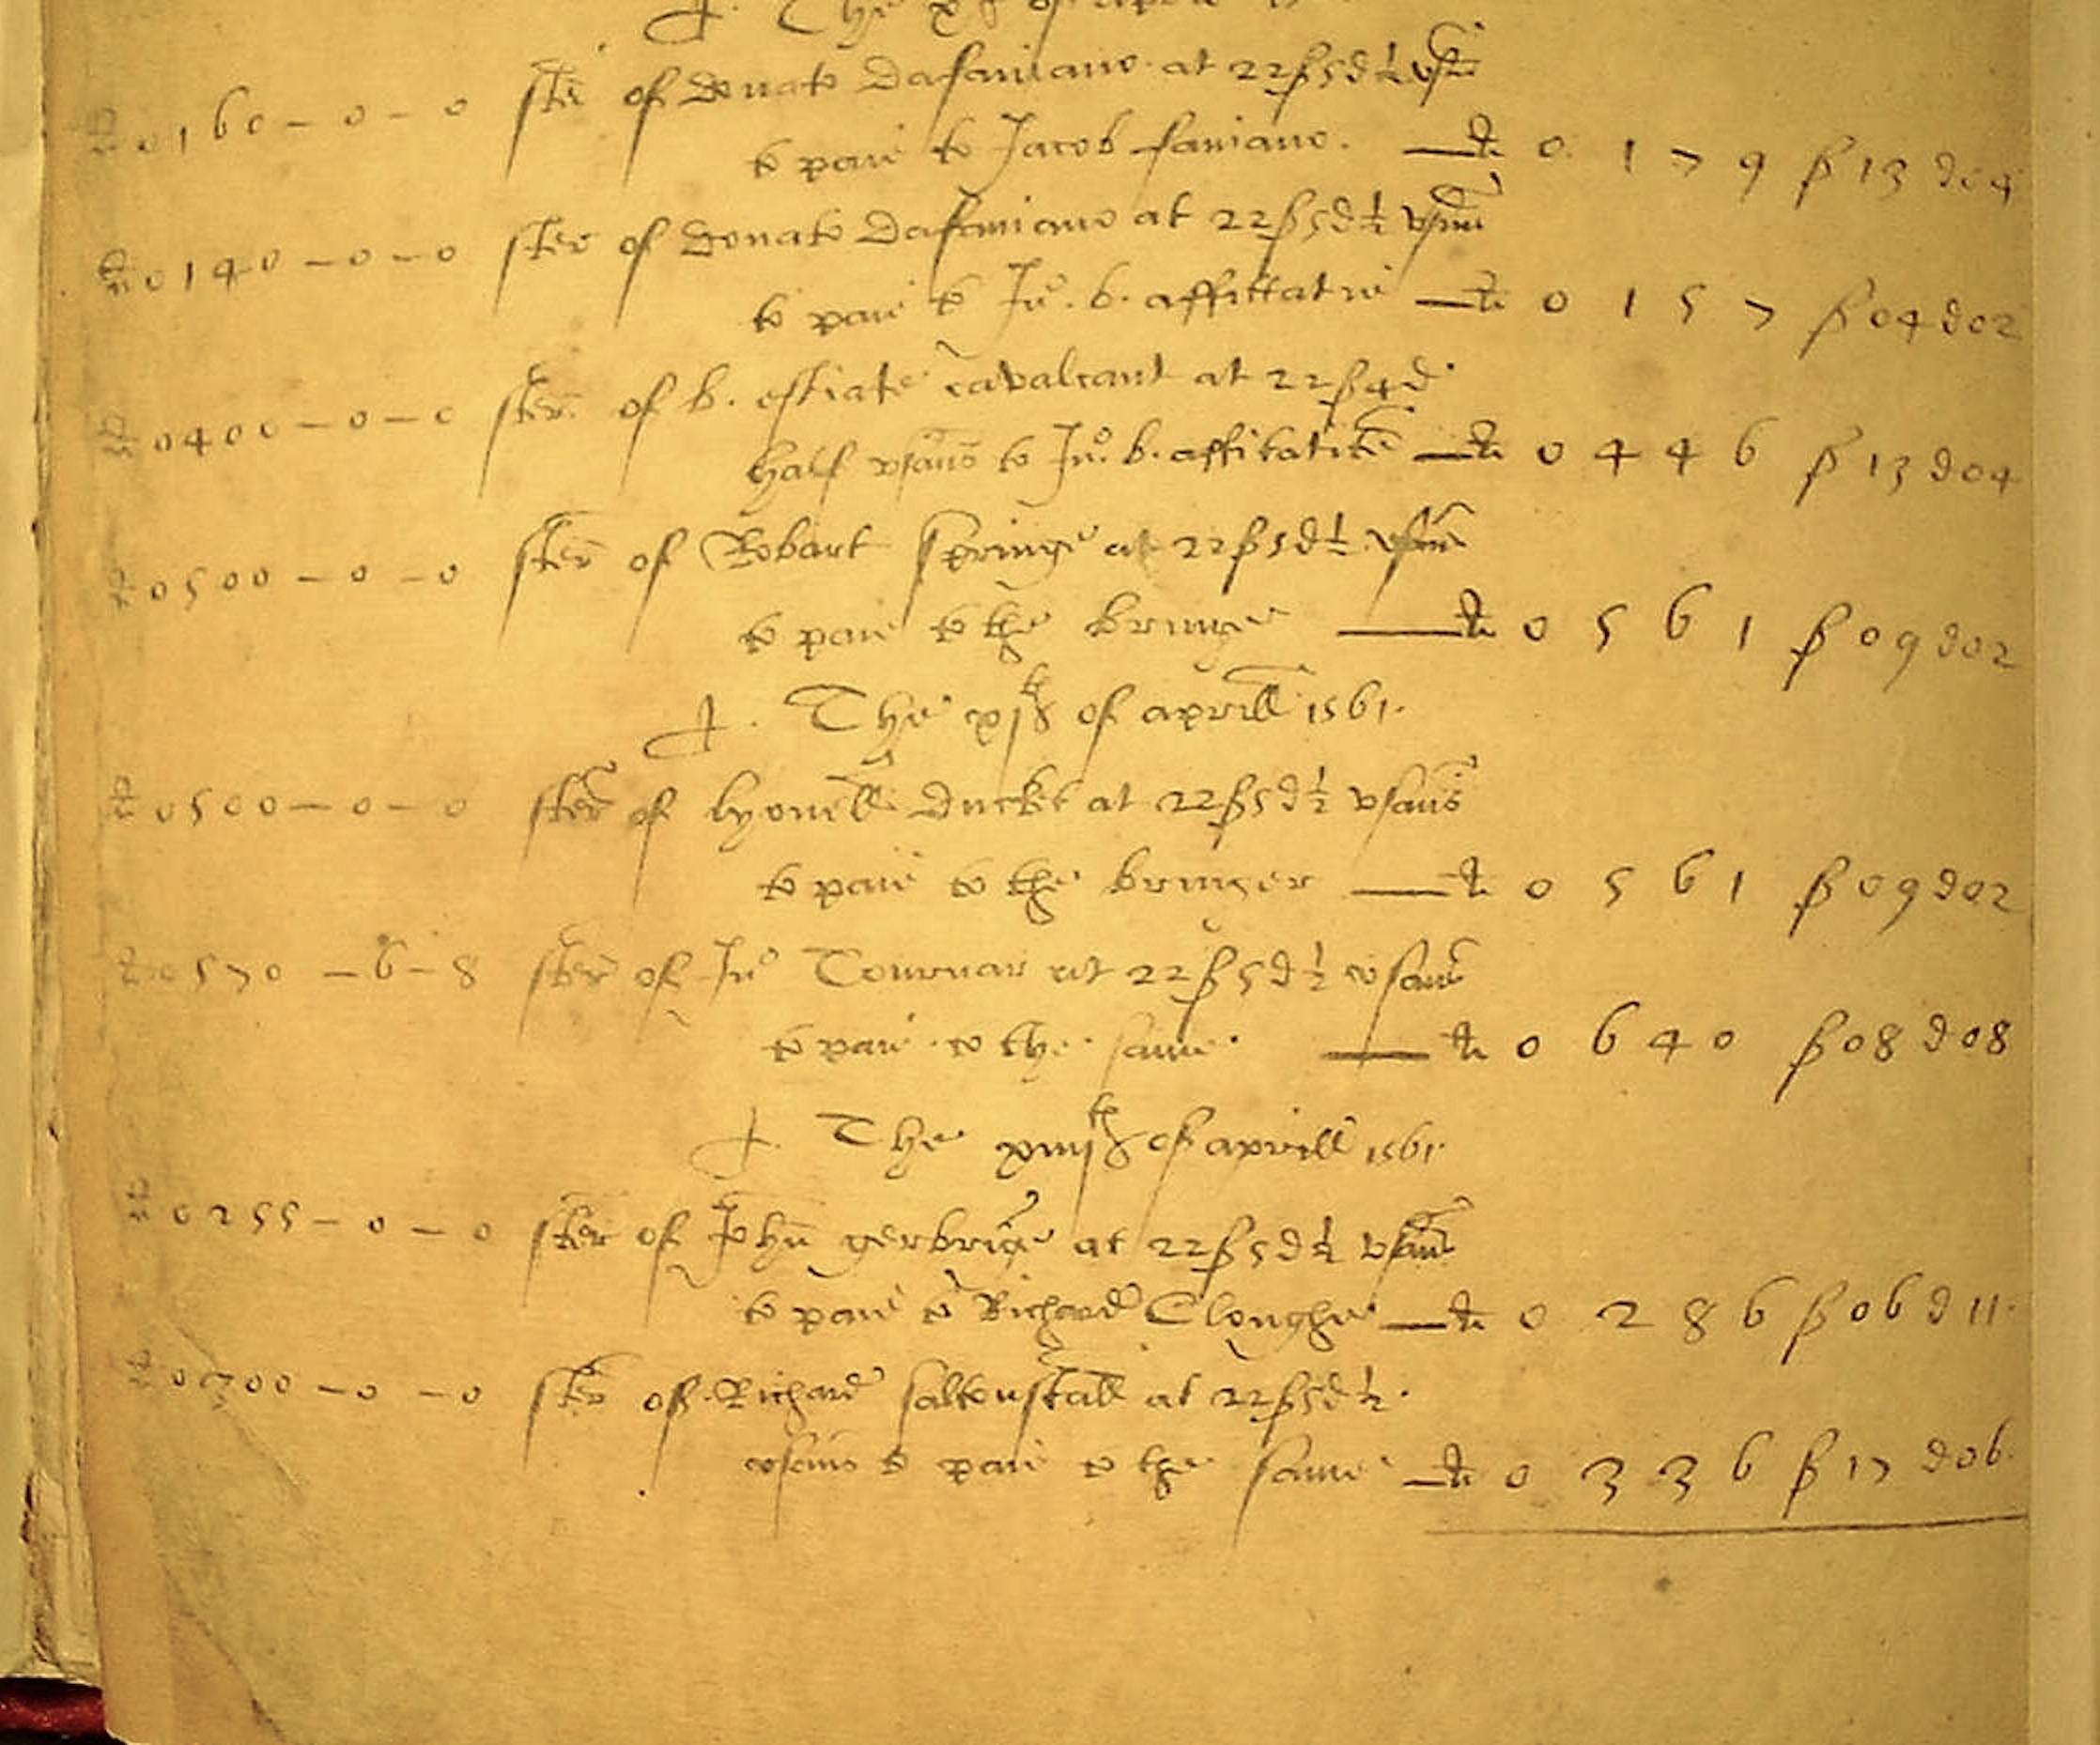 The x of
li 0160 - 0 - 0 ster of donato Dasaniano at 22ß 5d ½ usan
to paie to Jacob saniano. — li 0 1 7 9 ß 13 d 04
li 0140 - 0 - 0 ster of donato Dasaniano at 22ß 5d ½ usan
to paie to Jno. b. affittatie — li 0 1 5 7 ß 04 d 02
li 0400 - 0 - 0 ster of b. estiate cavalcant at 22ß 4d
half usans to Jno. b. affitatie — li 0 4 4 6 ß 13 d 04
li 0500 - 0 - 0 ster of Robart springe at 22ß 5d ½ usan
to paie to the bringer — li 0 5 6 1 ß 09 d 02
The xjth of aprill 1561.
li 0500 - 0 - 0 ster of lyonell Duckt at 22ß 5d ½ usans
to paie to the bringer — li 0 5 6 1 ß 09 d 02
li 0570 - 6 - 8 ster of Jno Tournar at 22ß 5d ½ usans
to paie to the same — li 0 6 4 0 ß 08 d 08
The xiiijth of aprill 1561.
li 0255 - 0 - 0 ster of John gerbrige at 22ß 5d ½ usans
to paie to Richard Cloughe — li 0 2 8 6 ß 06 d 11.
li 0300 - 0 - 0 ster of Richard saltonstall at 22ß 5d ½.
usans to paie to the same — li 0 3 3 6 ß 17 d 06.